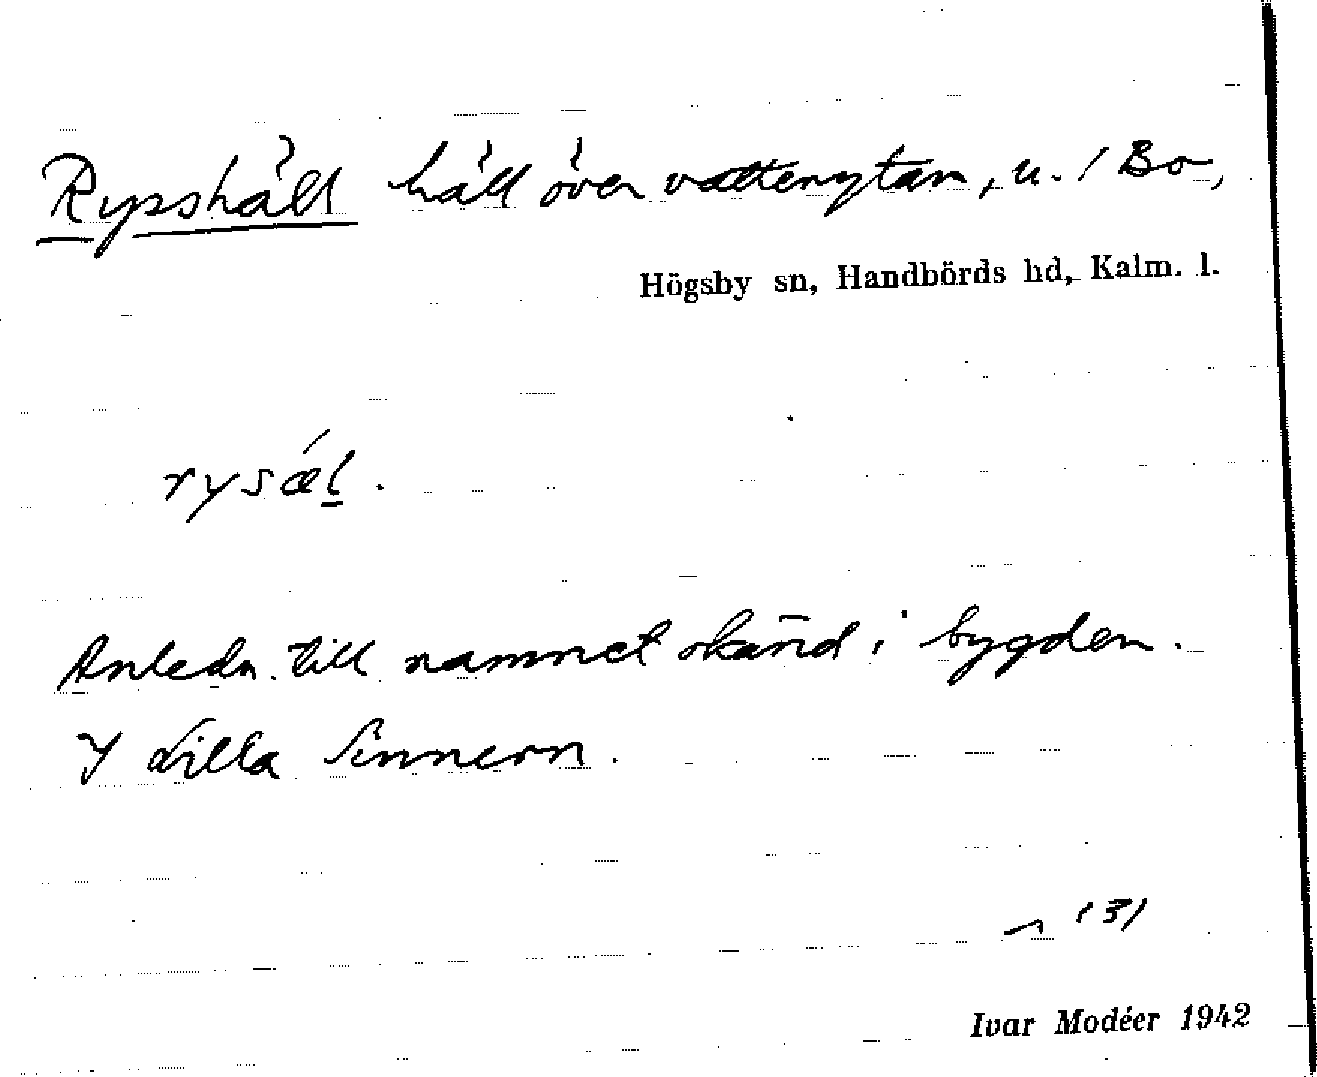 Rysshäll häll över vattenytan, u. / Bo,
Högsby sn, Handbörds hd, Kalm. l.
rysǽl.
Anledn. till namnet okänd i bygden.
I Lilla Sinnern.
131
Ivar Modéer 1942